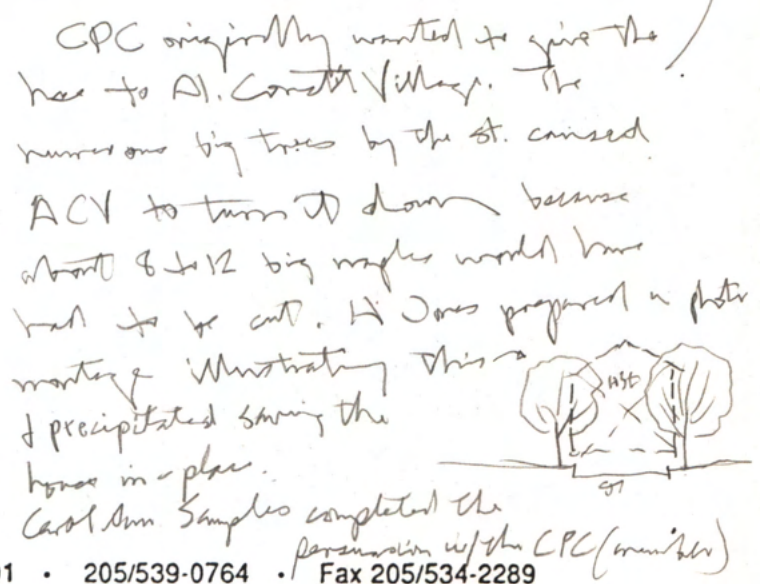 CPC originally wanted to give the
hse to Al. Constit Village. The
numerous big trees by the st. caused
ACV to turn it down because
about 8 to 12 big maples would have
had to be cut. H Jones prepared a photo
montage illustrating this
& precipitated saving the
house in-place.
HSE
ST
Carol Ann Samples completed the
persuasion w/the CPC (member)
01 • 205/539-0764 • Fax 205/534-2289